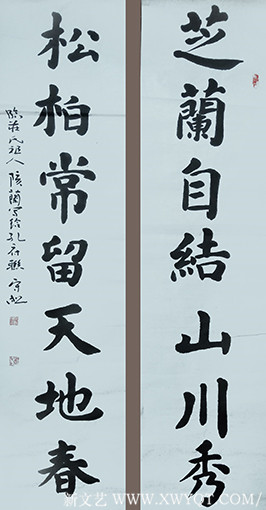 芝蘭自結山川秀
松柏常留天地春
新文艺 WWW.XWYOT.COM/